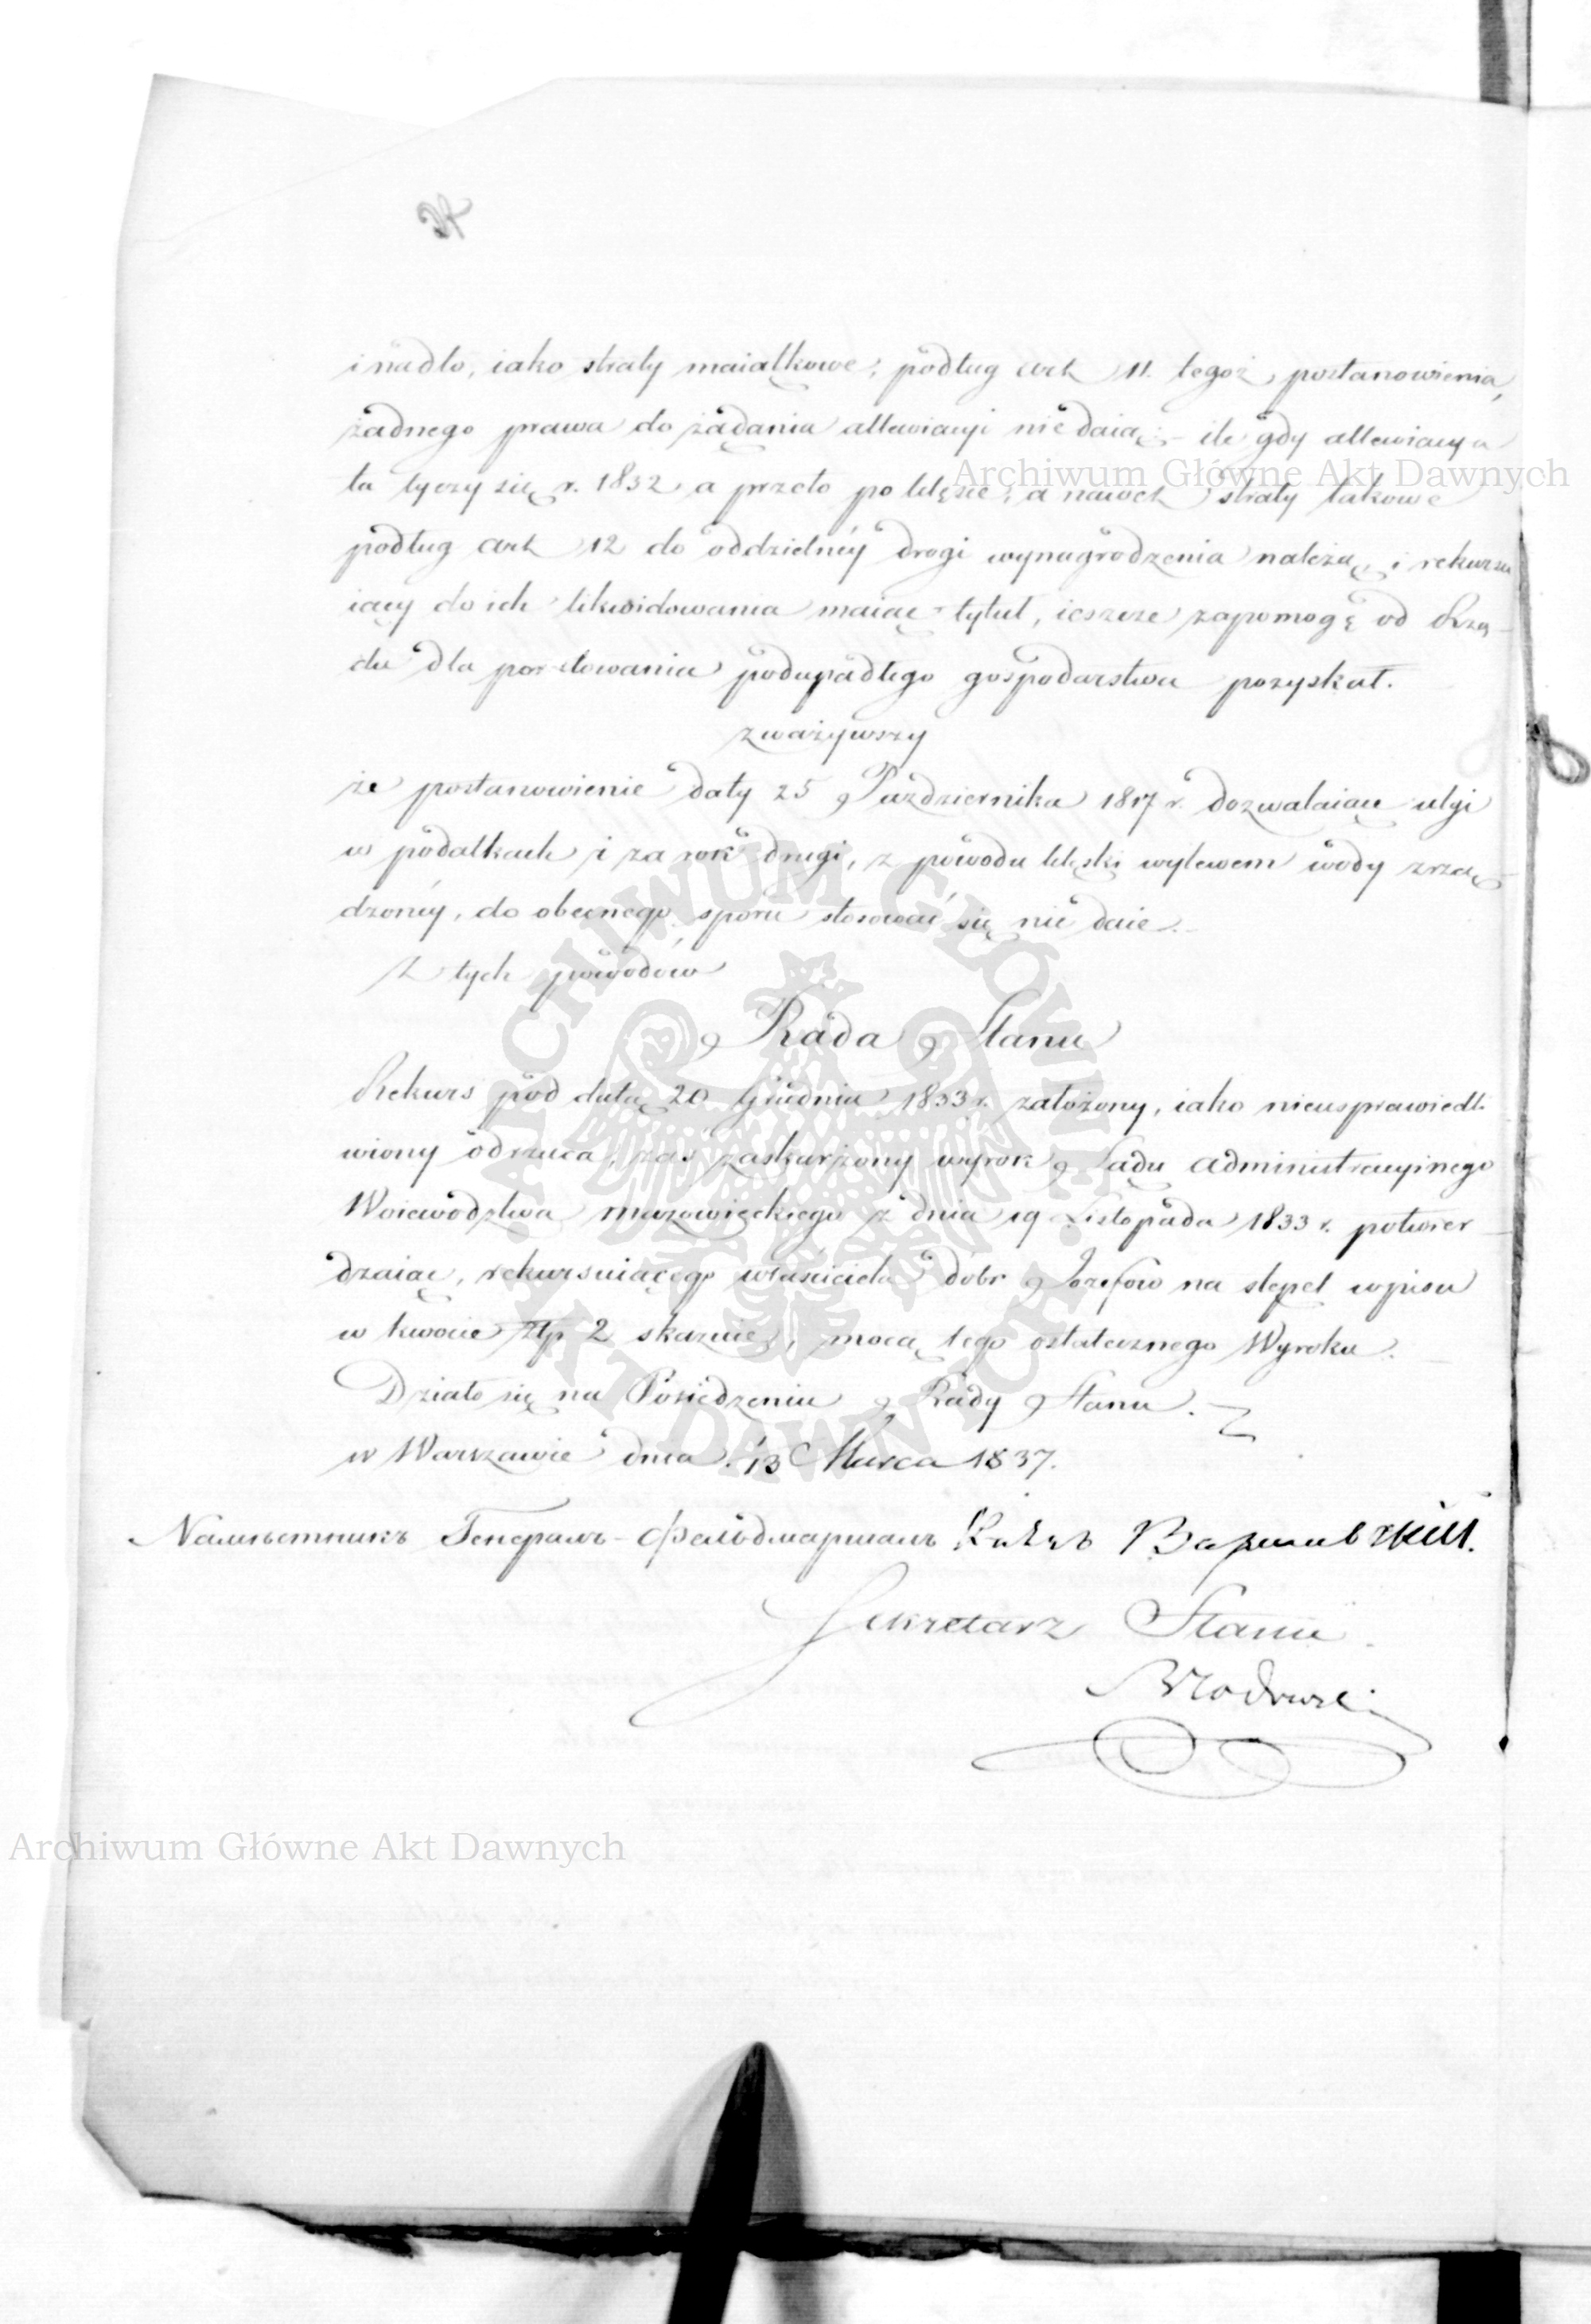 i nadto, iako straty maiątkowe; podług art 11. tegoż postanowienia,
żadnego prawa do żądania allewiacyi nie daią; – ile gdy allewiacya
ta tyczy się r. 1832 a przeto po klęsce; a nawet straty takowe
podług art 12 do oddzielnéy drogi wynagrodzenia należą, i rekursu
iący do ich likwidowania maiąc tytuł, ieszcze zapomogę od Rzą-
du dla poratowania podupadłego gospodarstwa pozyskał.
zważywszy
że postanowienie daty 25 Października 1817 r. dozwalaiąc ulgi
w podatkach i za rok drugi, z powodu klęski wylewem wody zrzą-
dzonéy, do obecnego sporu stosować się nie daie.
Z tych powodów
Rada Stanu
Rekurs pod datą 20 Grudnia 1833 r. założony, iako nieusprawiedli-
wiony odrzuca, zaś zaskarżony wyrok Sądu administracyinego
Woiewództwa mazowieckiego z dnia 19 Listopada 1833 r. potwier-
dzaiąc, rekursuiącego właściciela dóbr Jozefow na stępel wpisu
w kwocie Złp 2 skazuie, mocą tego ostatecznego Wyroku.
Działo się na Posiedzeniu Rady Stanu.
w Warszawie dnia 13 Marca 1837.
Намѣстникъ Генералъ-Фельдмаршалъ Князь Варшавскій.
Sekretarz Stanu
Archiwum Główne Akt Dawnych
Archiwum Główne Akt Dawnych
ARCHIWUM GŁÓWNE AKT DAWNYCH